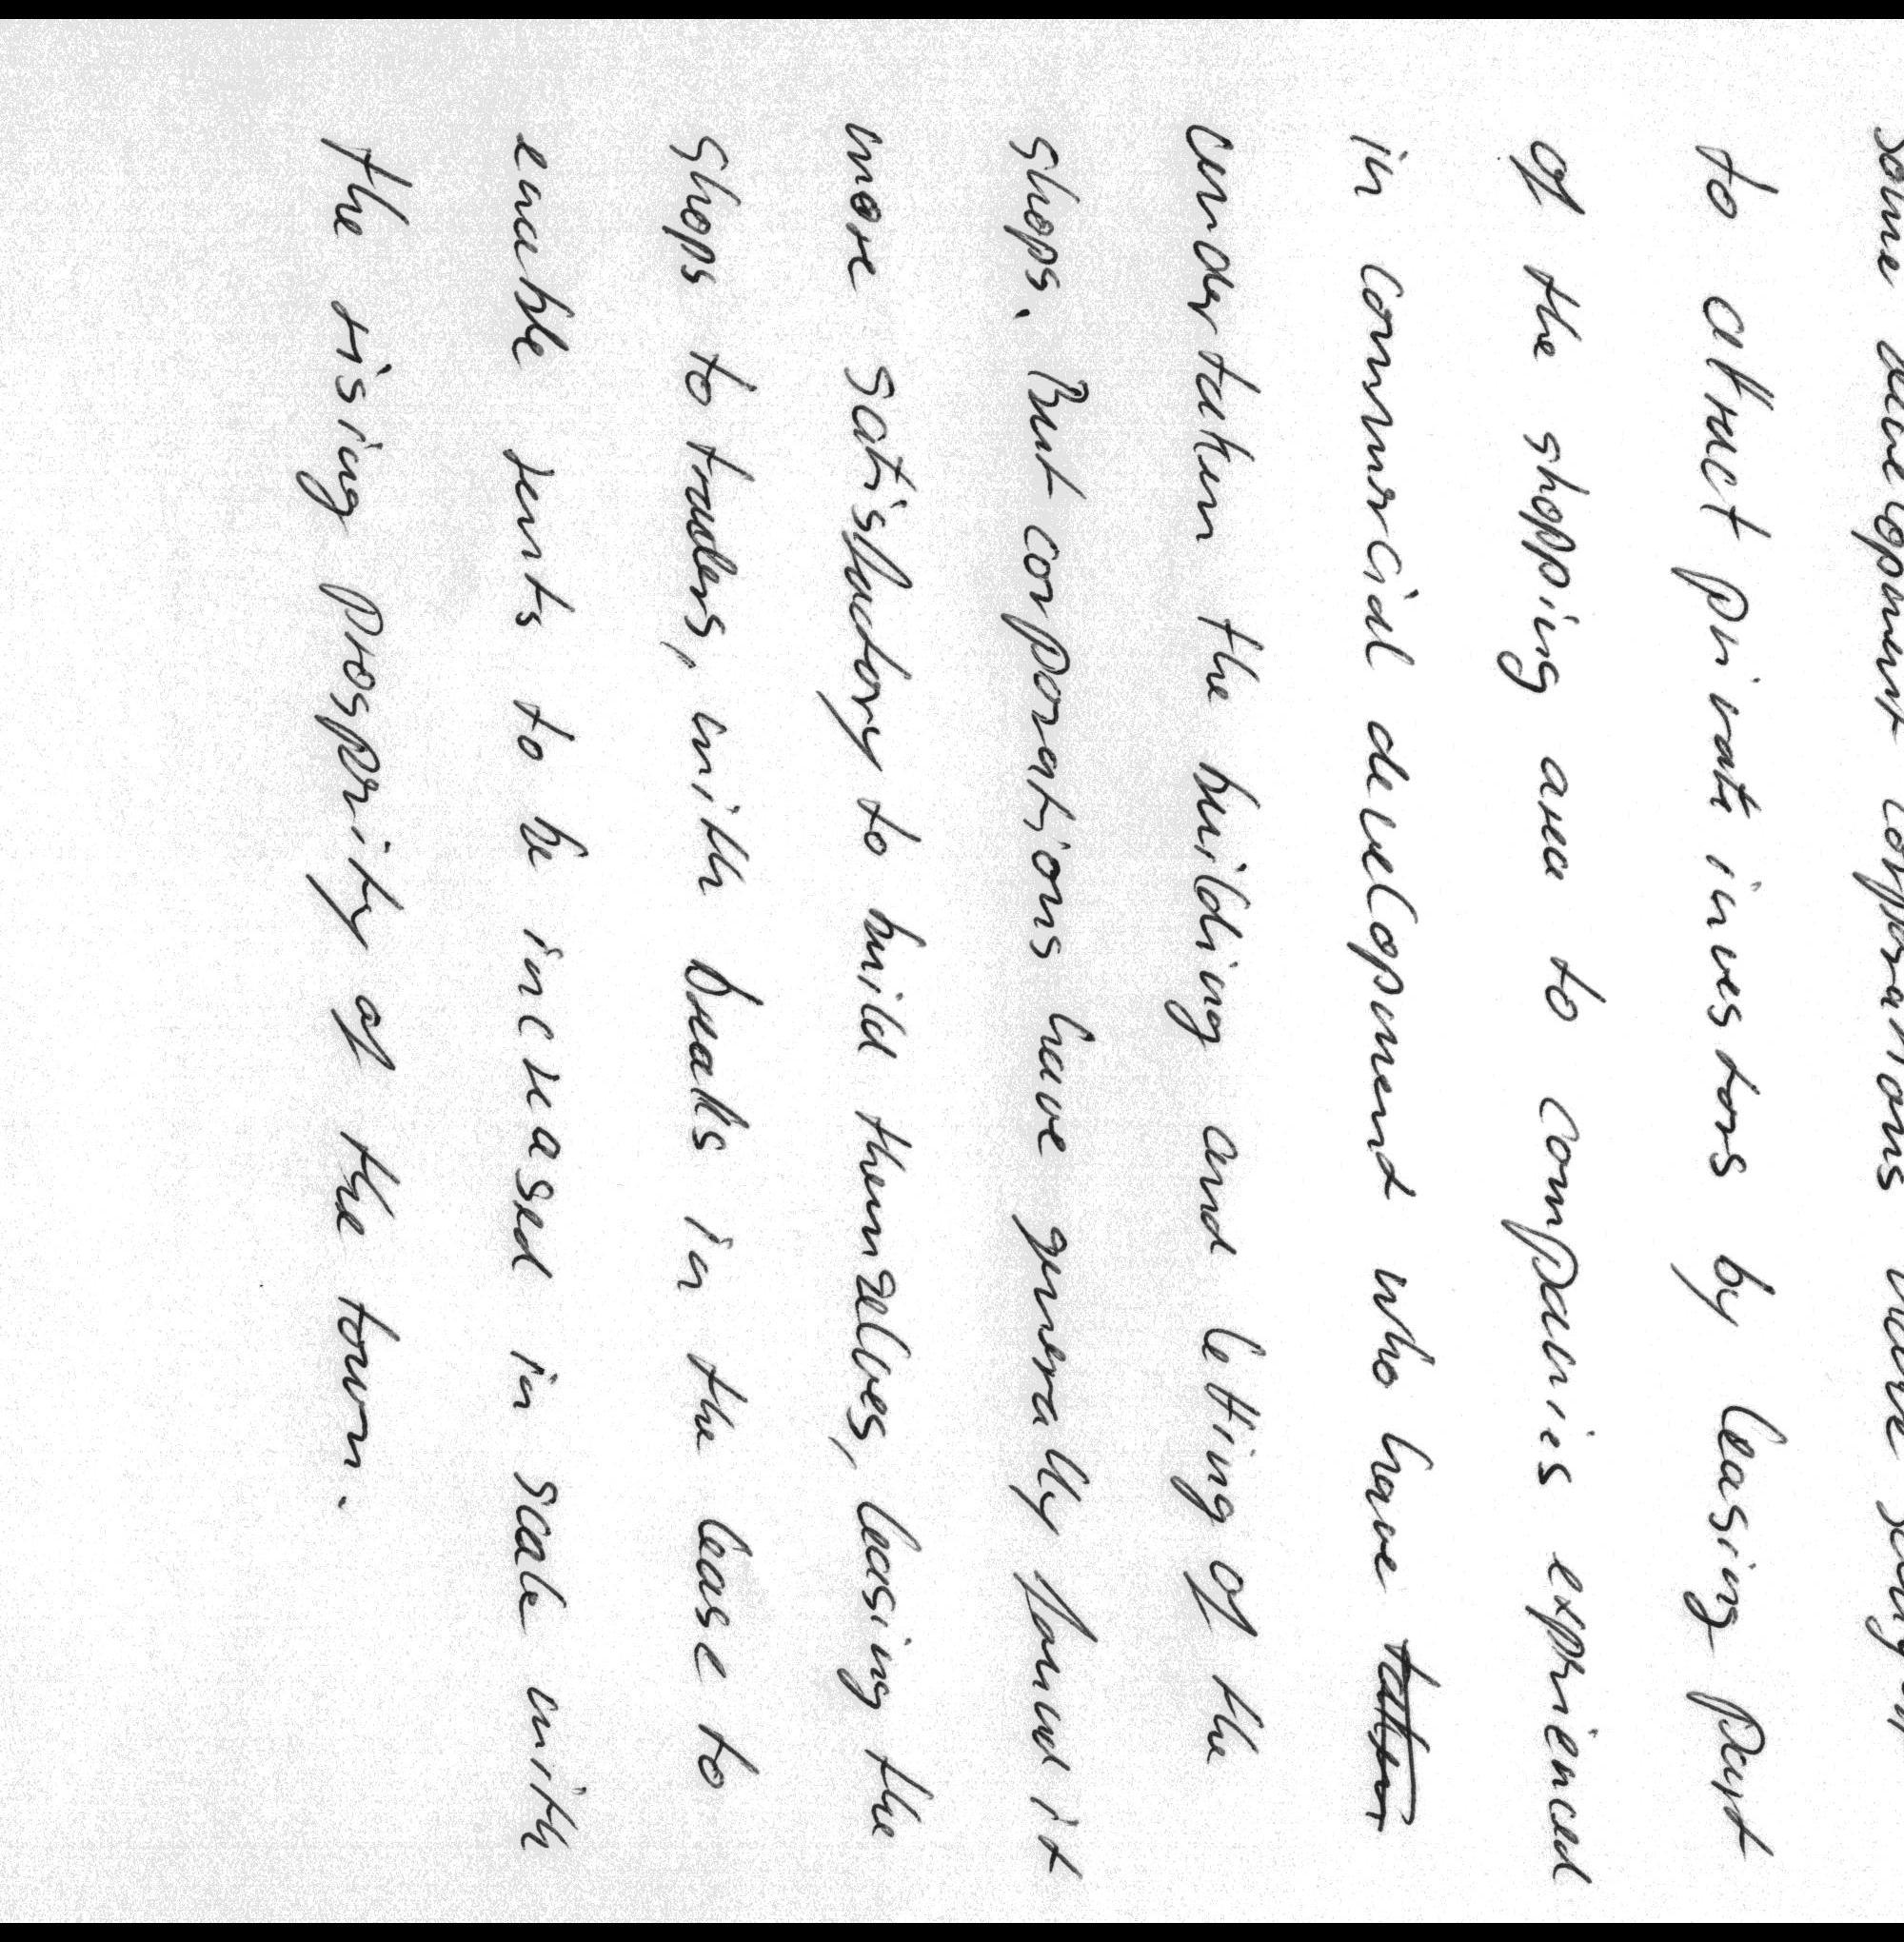 some development corporations have sought
to attract private investors by leasing part
of the shopping area to companies experienced
in commercial development who have
undertaken the building and letting of the
shops. But corporations have generally found it
more satisfactory to build themselves, leasing the
shops to traders, with breaks in the lease to
enable rents to be increased in scale with
the rising prosperity of the town.